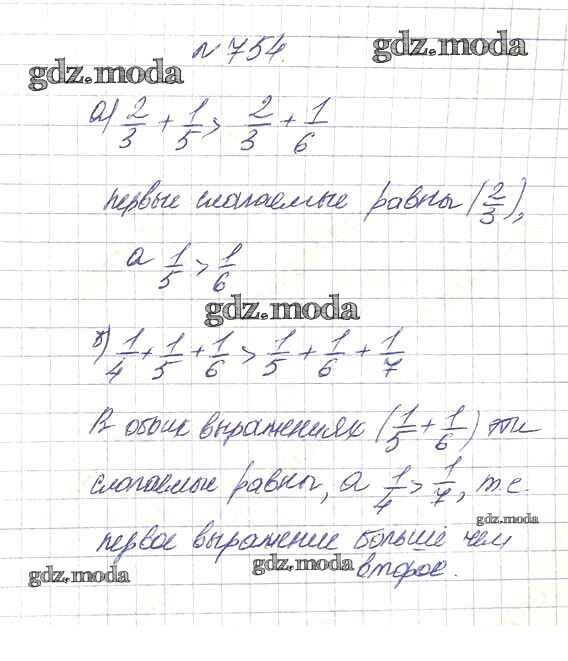 № 754.
gdz.moda gdz.moda
а) 2/3 + 1/5 > 2/3 + 1/6
первые слагаемые равны (2/3),
а 1/5 > 1/6
gdz.moda
б) 1/4 + 1/5 + 1/6 > 1/5 + 1/6 + 1/7
В обоих выражениях (1/5 + 1/6) эти
слагаемые равны, а 1/4 > 1/7, т.е.
gdz.moda
первое выражение больше чем
gdz.moda gdz.moda второе.